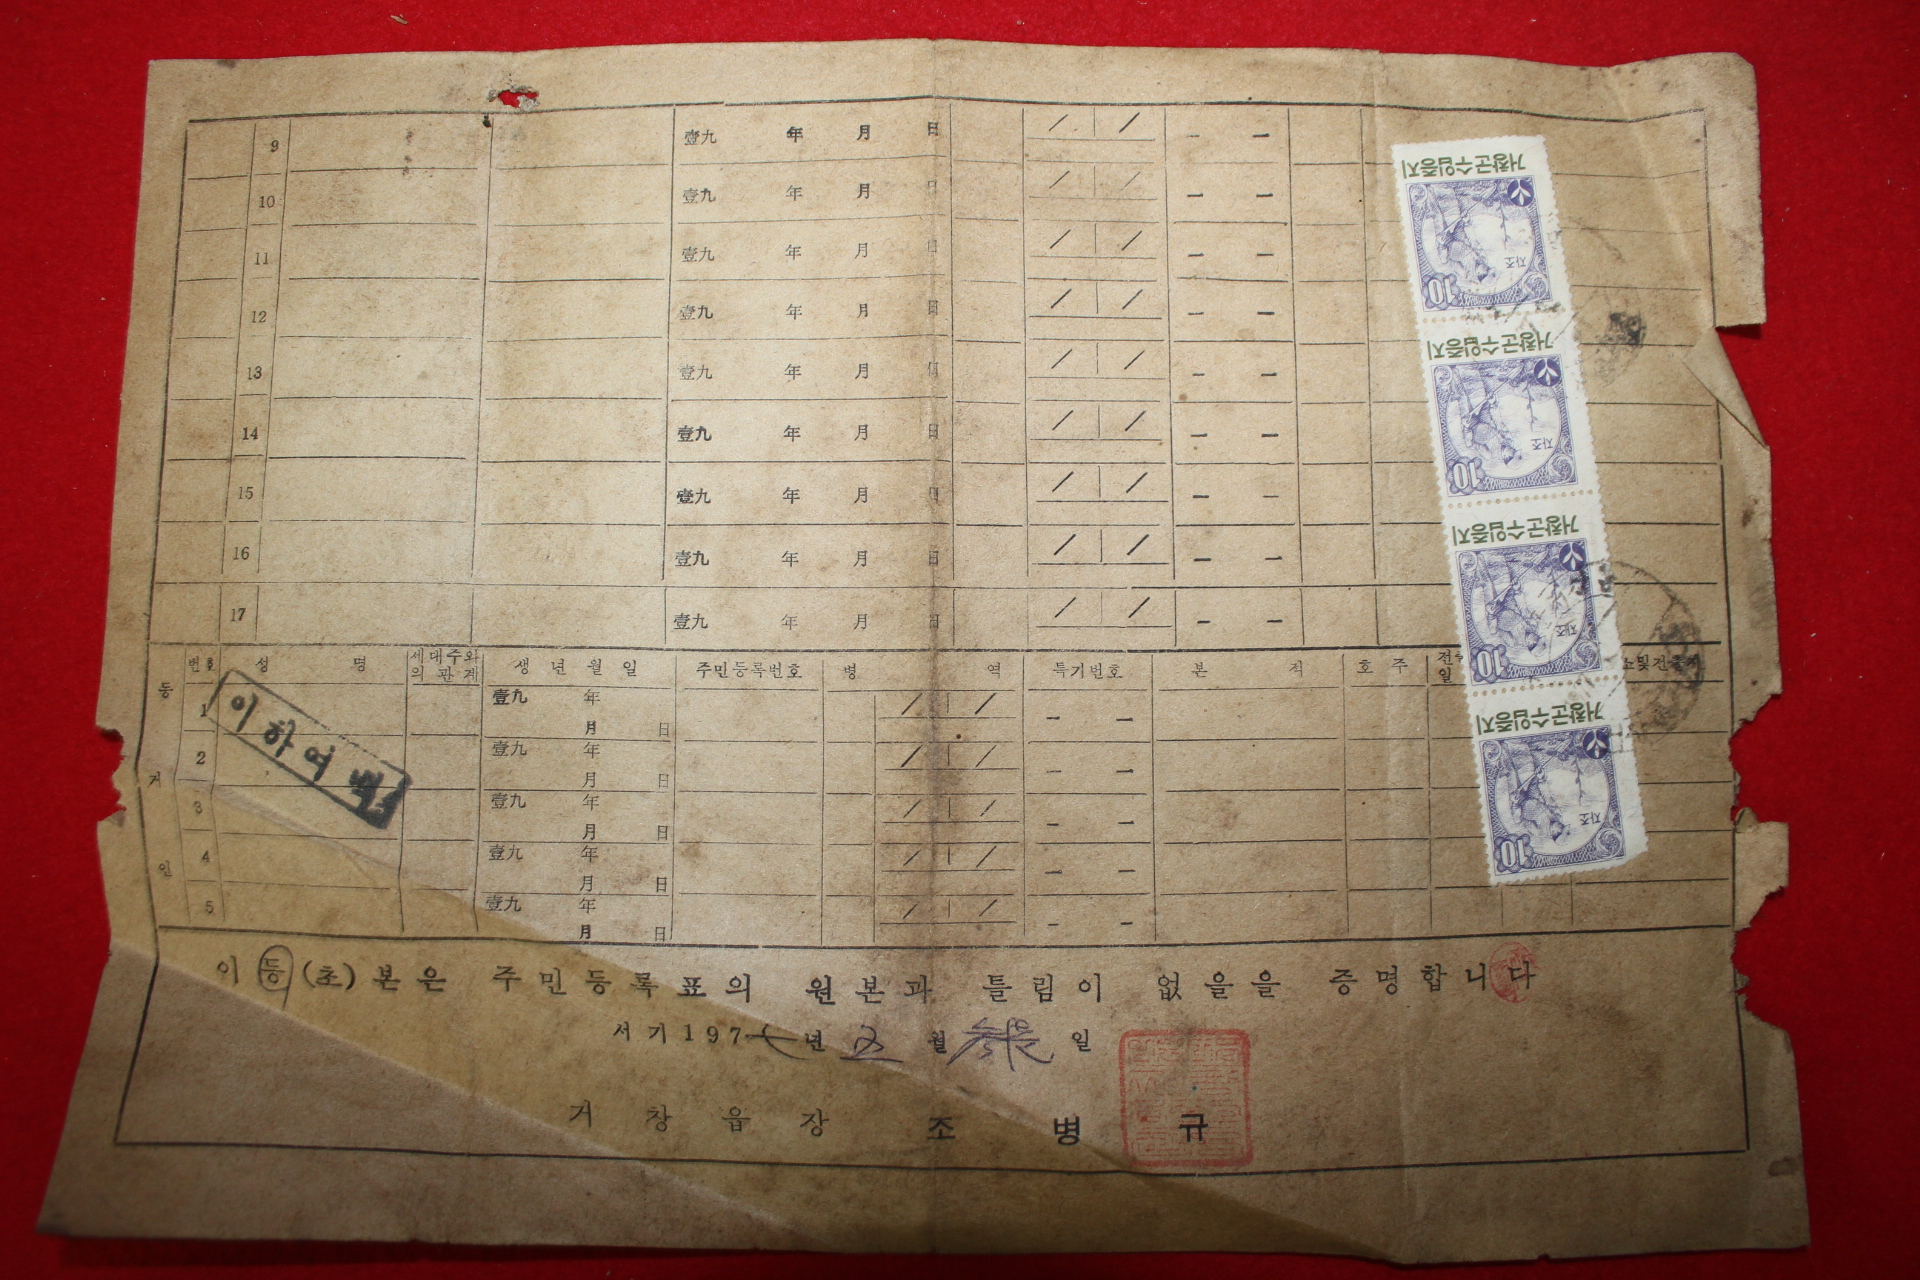 9 壹九 年 月 日 / / － －
10 壹九 年 月 日 / / － －
11 壹九 年 月 日 / / － －
12 壹九 年 月 日 / / － －
13 壹九 年 月 日 / / － －
14 壹九 年 月 日 / / － －
15 壹九 年 月 日 / / － －
16 壹九 年 月 日 / / － －
17 壹九 年 月 日 / / － －
번호 성 명 세대주와의 관계 생년월일 주민등록번호 병 역 특기번호 본 적 호주
동거인
1 壹九 年 月 日 / / － －
2 壹九 年 月 日 / / － －
3 壹九 年 月 日 / / － －
4 壹九 年 月 日 / / － －
5 壹九 年 月 日 / / － －
이하여백
거창군수입증지
자조
10
거창군수입증지
자조
10
거창군수입증지
자조
10
거창군수입증지
자조
10
이 등 (초) 본은 주민등록표의 원본과 틀림이 없을을 증명합니다
서기 197 년 五 월 일
거창읍장 조병규